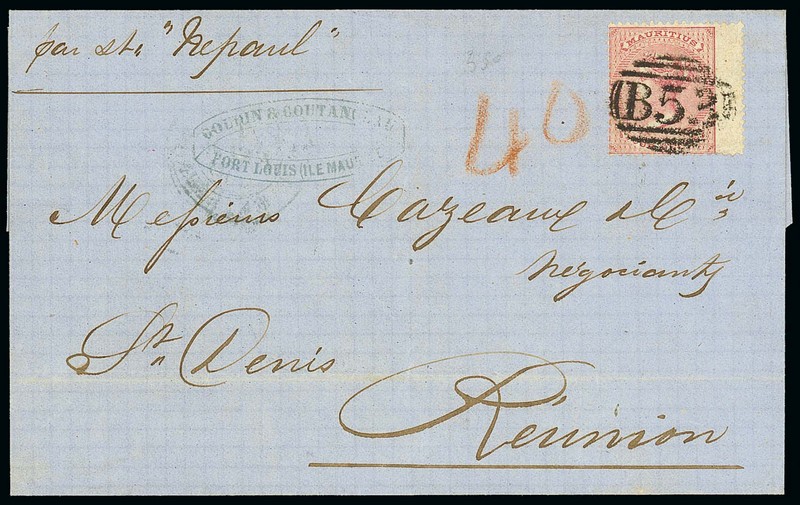 par str "Nepaul"
350
MAURITIUS
B53
40
GOUPIN & COUTAN
PORT LOUIS (ILE MAU
Messieurs Cazeaux & Cie
négociants
St Denis
Réunion